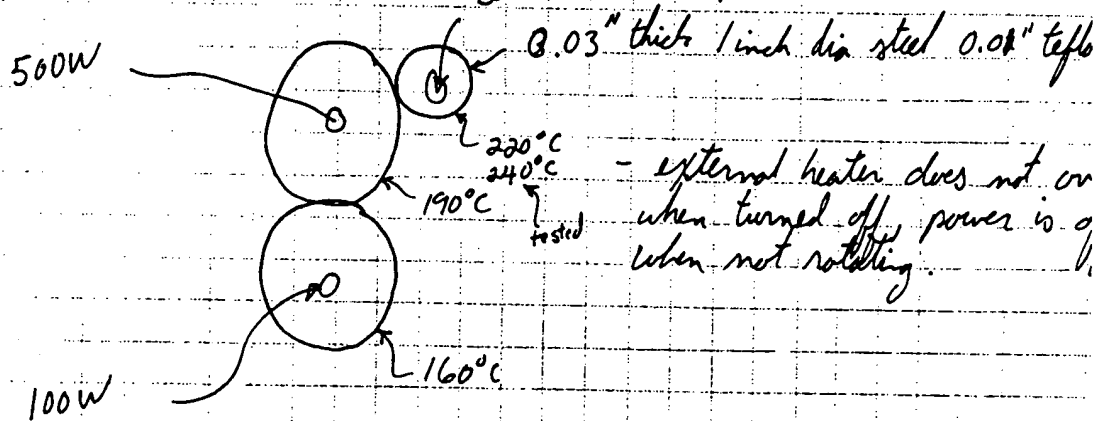 500W
0.03" thick 1 inch dia steel 0.01" teflo
220°C
240°C
tested
190°C
- external heater does not ov
when turned off, power is o
when not rotating.
160°C
100W